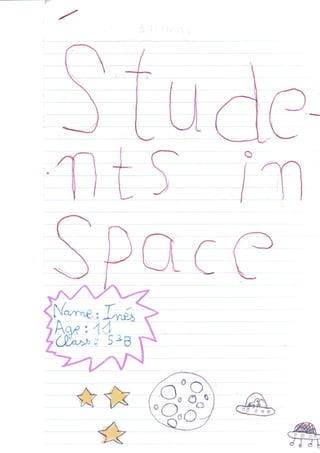 Stude-
nts in
Space
Name: Inés
Age: 11
Class: 5ªB